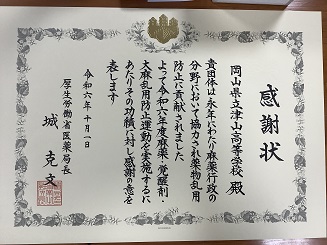 感謝状
岡山県立津山高等学校 殿
貴団体は永年にわたり麻薬行政の
分野において協力され薬物乱用
防止に貢献されました
よって令和六年度麻薬・覚醒剤・
大麻乱用防止運動を実施するに
あたりその功績に対し感謝の意を
表します
令和六年十月一日
厚生労働省医薬局長
城 克文